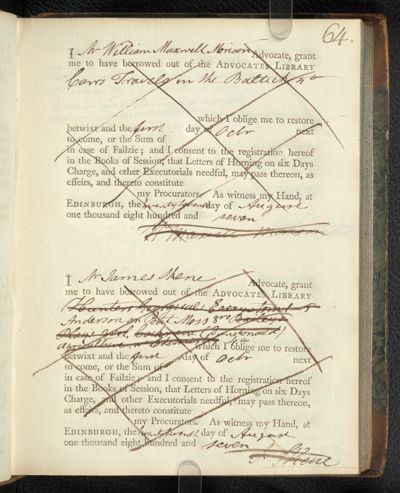 64.
I Mr William Maxwell Morison Advocate, grant
me to have borrowed out of the ADVOCATES LIBRARY
Carrs Travels in the Baltick 4to
which I oblige me to restore
betwixt and the first day of Octr next
to come, or the Sum of
in case of Failzie; and I consent to the registration hereof
in the Books of Session, that Letters of Horning on six Days
Charge, and other Executorials needful, may pass thereon, as
effeirs, and thereto constitute
my Procurators. As witness my Hand, at
EDINBURGH, the day of August
one thousand eight hundred and seven
Morison
I Mr James Skene Advocate, grant
me to have borrowed out of the ADVOCATES LIBRARY
Hunter
Anderson on Peat Moss 8vo
which I oblige me to restore
betwixt and the first day of Octr next
to come, or the Sum of
in case of Failzie; and I consent to the registration hereof
in the Books of Session, that Letters of Horning on six Days
Charge, and other Executorials needful, may pass thereon,
as effeirs, and thereto constitute
my Procurators. As witness my Hand, at
EDINBURGH, the day of August
one thousand eight hundred and seven
Skene